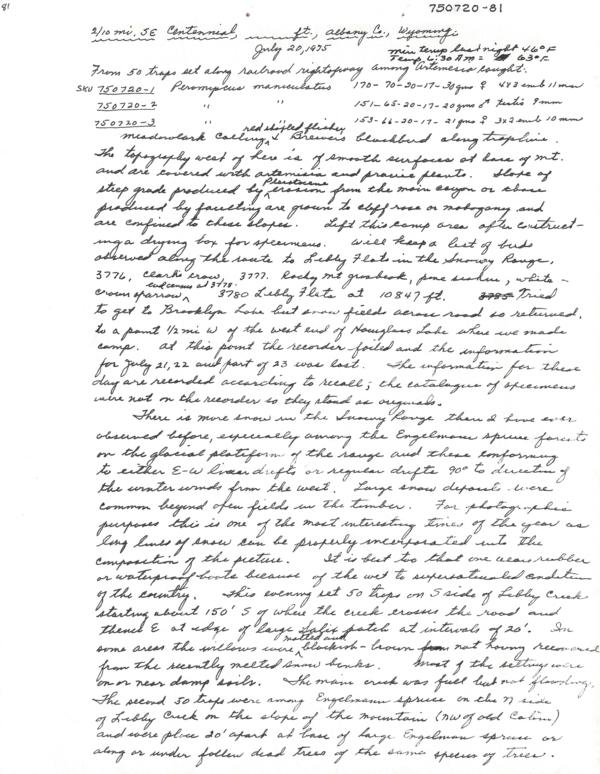 81
750720-81
2/10 mi. SE Centennial, ____ ft., Albany Co., Wyoming
July 20, 1975
min temp last night 46°F
Temp 6:30 AM = 63°F
From 50 traps set along railroad rightofway among Artemesia caught.
SKU 750720-1 Peromyscus maniculatus 170-70-20-17-30gms ♀ 4x3 emb 11mm
750720-2 " " 151-65-20-17-20gms ♂ testis 9mm
750720-3 153-66-20-17-21gms ♀ 3x2 emb 10mm
meadowlark calling, red shafted flicker & Brewers blackbird along trapline.
The topography west of here is of smooth surfaces at base of mt.
and are covered with artemisia and prairie plants. Slopes of
steep grade produced by Pleistocene erosion from the main canyon or above
produced by faulting are grown to cliff rose or mahogany and
are confined to these slopes. Left this camp area after construct-
ing a drying box for specimens. Will keep a list of birds
observed along the route to Libby Flats in the Snowy Range,
3776, Clark's crow, 3777. Rocky Mt grosbeak, pine siskin, white-
crown sparrow, end census at 3778. 3780 Libby Flats at 10847 ft. 3785 Tried
to get to Brooklyn Lake but snow fields across road so returned.
to a point 1/2 mi W of the west end of Hourglass Lake where we made
camp. At this point the recorder foiled and the information
for July 21, 22 and part of 23 was lost. The information for these
day are recorded according to recall; the catalogue of specimens
were not on the recorder so they stand as originals.
There is more snow in the Snowy Range than I have ever
observed before, especially among the Engelmann spruce forests
on the glacial plateform of the range and these conforming
to either E-W linear drifts or regular drifts 90° to direction of
the winter winds from the west. Large snow deposits were
common beyond open fields in the timber. For photographic
purposes this is one of the most interesting times of the year as
long lines of snow can be properly incorporated into the
composition of the picture. It is best too that one wears rubber
or waterproof boots because of the wet to supersaturated condition
of the country. This evening set 50 traps on S side of Libby Creek
starting about 150' S of where the creek crosses the road and
thence E at edge of large Salix patch at intervals of 20'. In
some areas the willows were matted and blackish-brown not having recovered
from the recently melted snow banks. Most of the settings were
on or near damp soils. The main creek was full but not flooding.
The second 50 traps were among Engelmann spruce on the N side
of Libby Creek on the slope of the mountain (NW of old Cabin)
and were place 20' apart at base of large Engelman spruce or
along or under fallen dead trees of the same species of tree.